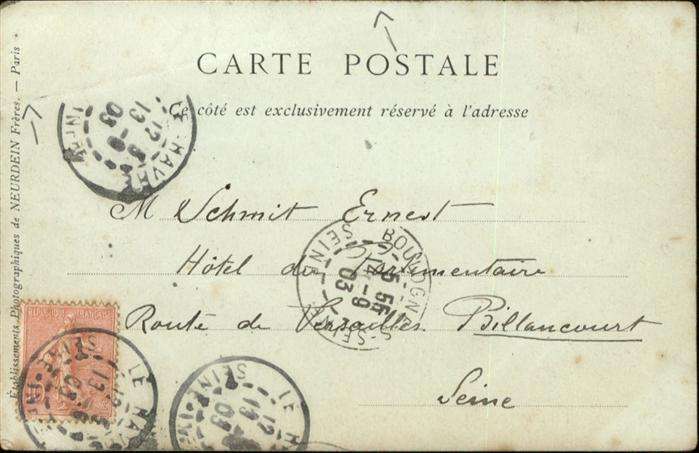 CARTE POSTALE
Ce côté est exclusivement réservé à l'adresse
M Schmit Ernest
Hôtel du Parlementaire
Route de Versailles Billancourt
Seine
Établissements Photographiques de NEURDEIN Frères. — Paris
LE HAVRE
12
13 -9
03
BOULOGNE-S-SEINE
SEINE
5 55
-9
03
LE HAVRE
SEINE-INF
13
03
LE HAVRE
SEINE-INF
12
13
03